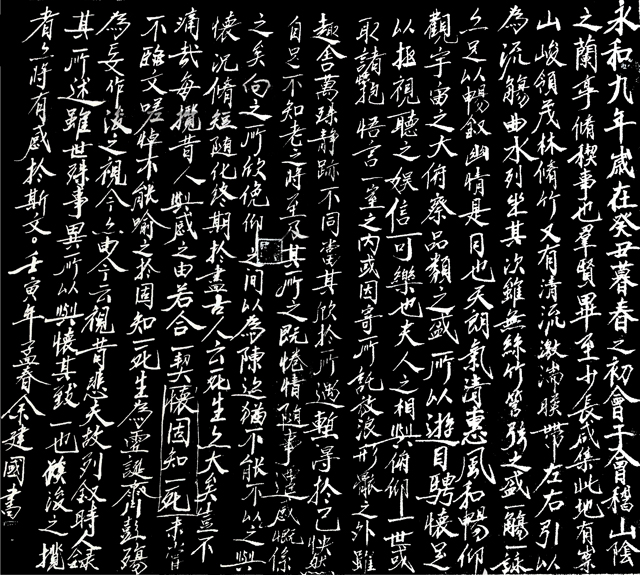 永和九年歲在癸丑暮春之初會于會稽山陰
之蘭亭脩禊事也羣賢畢至少長咸集此地有崇
山峻領茂林脩竹又有清流激湍暎帶左右引以
為流觴曲水列坐其次雖無絲竹管弦之盛一觴一詠
亦足以暢敘幽情是日也天朗氣清惠風和暢仰
觀宇宙之大俯察品類之盛所以遊目騁懷足
以極視聽之娛信可樂也夫人之相與俯仰一世或
取諸抱悟言一室之内或因寄所託放浪形骸之外雖
趣舍萬殊靜躁不同當其欣於所遇暫得於己怏然
自足不知老之將至及其所之既惓情隨事遷感慨係
之矣向之所欣俛仰之間以為陳迹猶不能不以之興
懷況脩短隨化終期於盡古人云死生亦大矣豈不
痛哉每攬昔人興感之由若合一契懷固知一死未嘗
不臨文嗟悼不能喻之於固知一死生為虛誕齊彭殤
為妄作後之視今亦由今云視昔悲夫故列敘時人錄
其所述雖世殊事異所以興懷其致一也後之攬
者亦將有感於斯文。壬寅年孟春余建國書